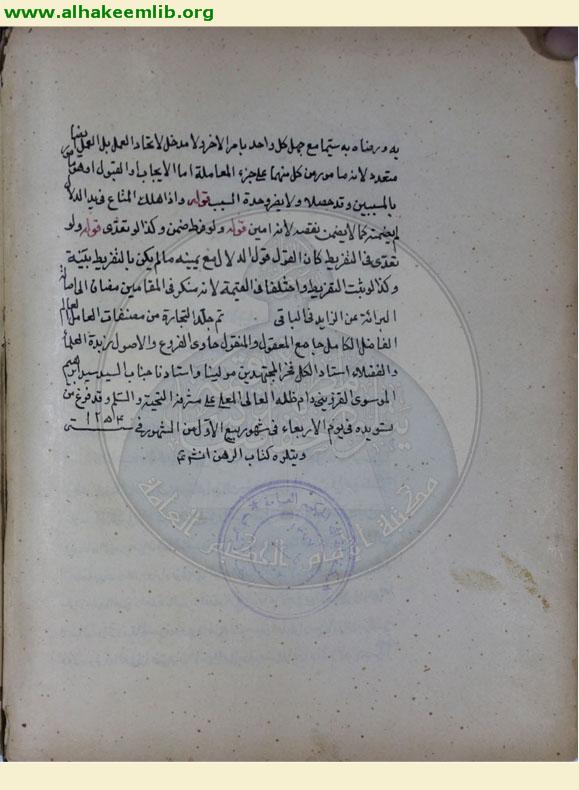 www.alhakeemlib.org
به ورضاه به سيما مع جهل كل واحد بامر الاخر ولا مدخل لاتحاد العمل بل العمل هنا
متعدد لانه مامور من كل منهما على جزء المعاملة اما الايجاب او القبول او هو قائم
بالمسببين وقد حصلا ولا يضر وحدة السبب قوله واذا هلك المتاع فى يد الدلال
لم يضمنه كما لا يضمن نقصه لانه امين قوله ولو فرط ضمن وكذا لو تعدى قوله ولو
تعدى فى التفريط كان القول قول الدلال مع يمينه مالم يكن بالتفريط بينة
وكذا لو ثبت التفريط واختلفا فى القيمة لانه منكر فى المقامين مضافا الى اصالة
البرائة عن الزايد فالباقى تم جلد التجارة من مصنفات العامل العالم
الفاضل الكامل جامع المعقول والمنقول حاوى الفروع والاصول زبدة العلماء
والفضلاء استاد الكل فخر المجتهدين مولينا واستادنا جنابا السيد سيد ابراهيم
الموسوى القزوينى دام ظله العالى المعلى على مشرفه التحية والسلم وقد فرغ من
تسويده فى يوم الاربعاء فى شهر ربيع الاول من الشهور فى سنة ١٢٥٤
ويتلوه كتاب الرهن انشم تم
مكتبة الإمام الحكيم العامة